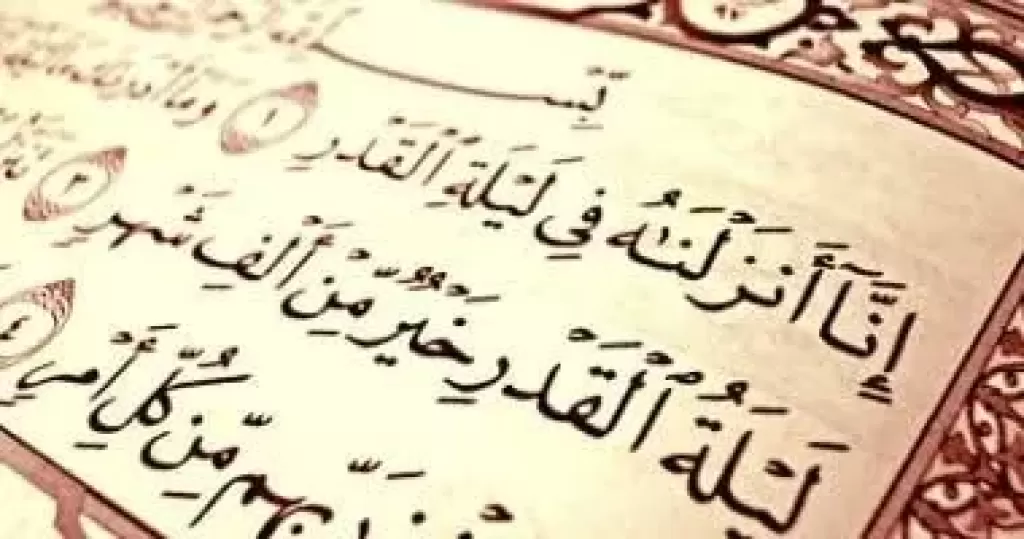 بِسْـ
إِنَّآ أَنزَلْنَٰهُ فِي لَيْلَةِ ٱلْقَدْرِ ١ وَمَآ أَدْرَىٰكَ
لَيْلَةُ ٱلْقَدْرِ خَيْرٌ مِّنْ أَلْفِ شَهْرٍ ٣
رَبِّهِم مِّن كُلِّ أَمْرٍ ٤